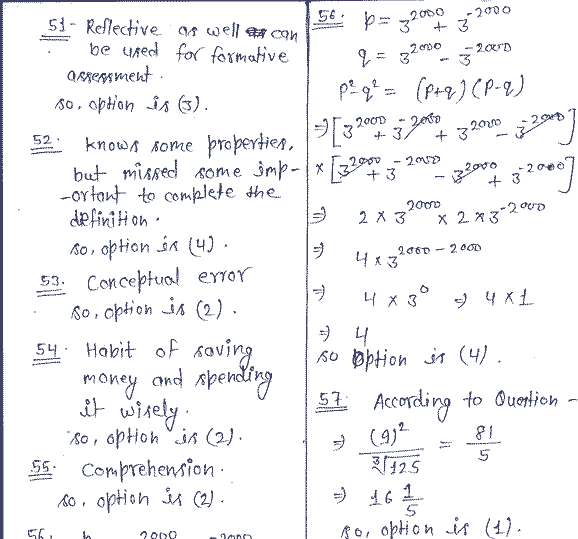 51- Reflective as well as can
be used for formative
assessment.
so, option is (3).
52. knows some properties,
but missed some imp-
-ortant to complete the
definition.
so, option is (4).
53. Conceptual error
so, option is (2).
54. Habit of saving
money and spending
it wisely.
so, option is (2).
55. Comprehension.
so, option is (2).
56. p = 3^2000 + 3^-2000
q = 3^2000 - 3^-2000
p²-q² = (p+q)(p-q)
⇒ [3^2000 + 3^-2000 + 3^2000 - 3^-2000]
× [3^2000 + 3^-2000 - 3^2000 + 3^-2000]
⇒ 2 × 3^2000 × 2 × 3^-2000
⇒ 4 × 3^2000-2000
⇒ 4 × 3^0 ⇒ 4 × 1
⇒ 4
so option is (4).
57. According to Question -
⇒ (9)²/∛125 = 81/5
⇒ 16 1/5
so, option is (1).